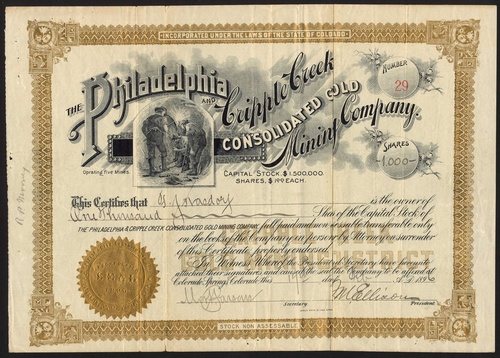 INCORPORATED UNDER THE LAWS OF THE STATE OF COLORADO.
THE Philadelphia AND Cripple Creek
CONSOLIDATED GOLD
Mining Company.
NUMBER
29
SHARES
1,000
Oprating Five Mines.
CAPITAL STOCK, $1,500,000.
SHARES, $1.00 EACH.
This Certifies that is the owner of
One Thousand Shares of the Capital Stock of
THE PHILADELPHIA & CRIPPLE CREEK CONSOLIDATED GOLD MINING COMPANY full paid and non-assessable transferable only
on the books of the Company in person or by Attorney on surrender
of this Certificate properly endorsed.
In Witness Whereof the President & Secretary have hereunto
attached their signatures and caused the seal the Company to be affixed at
Colorado Springs, Colorado this day 1896
Secretary
M. Ellison
President
STOCK NON ASSESSABLE